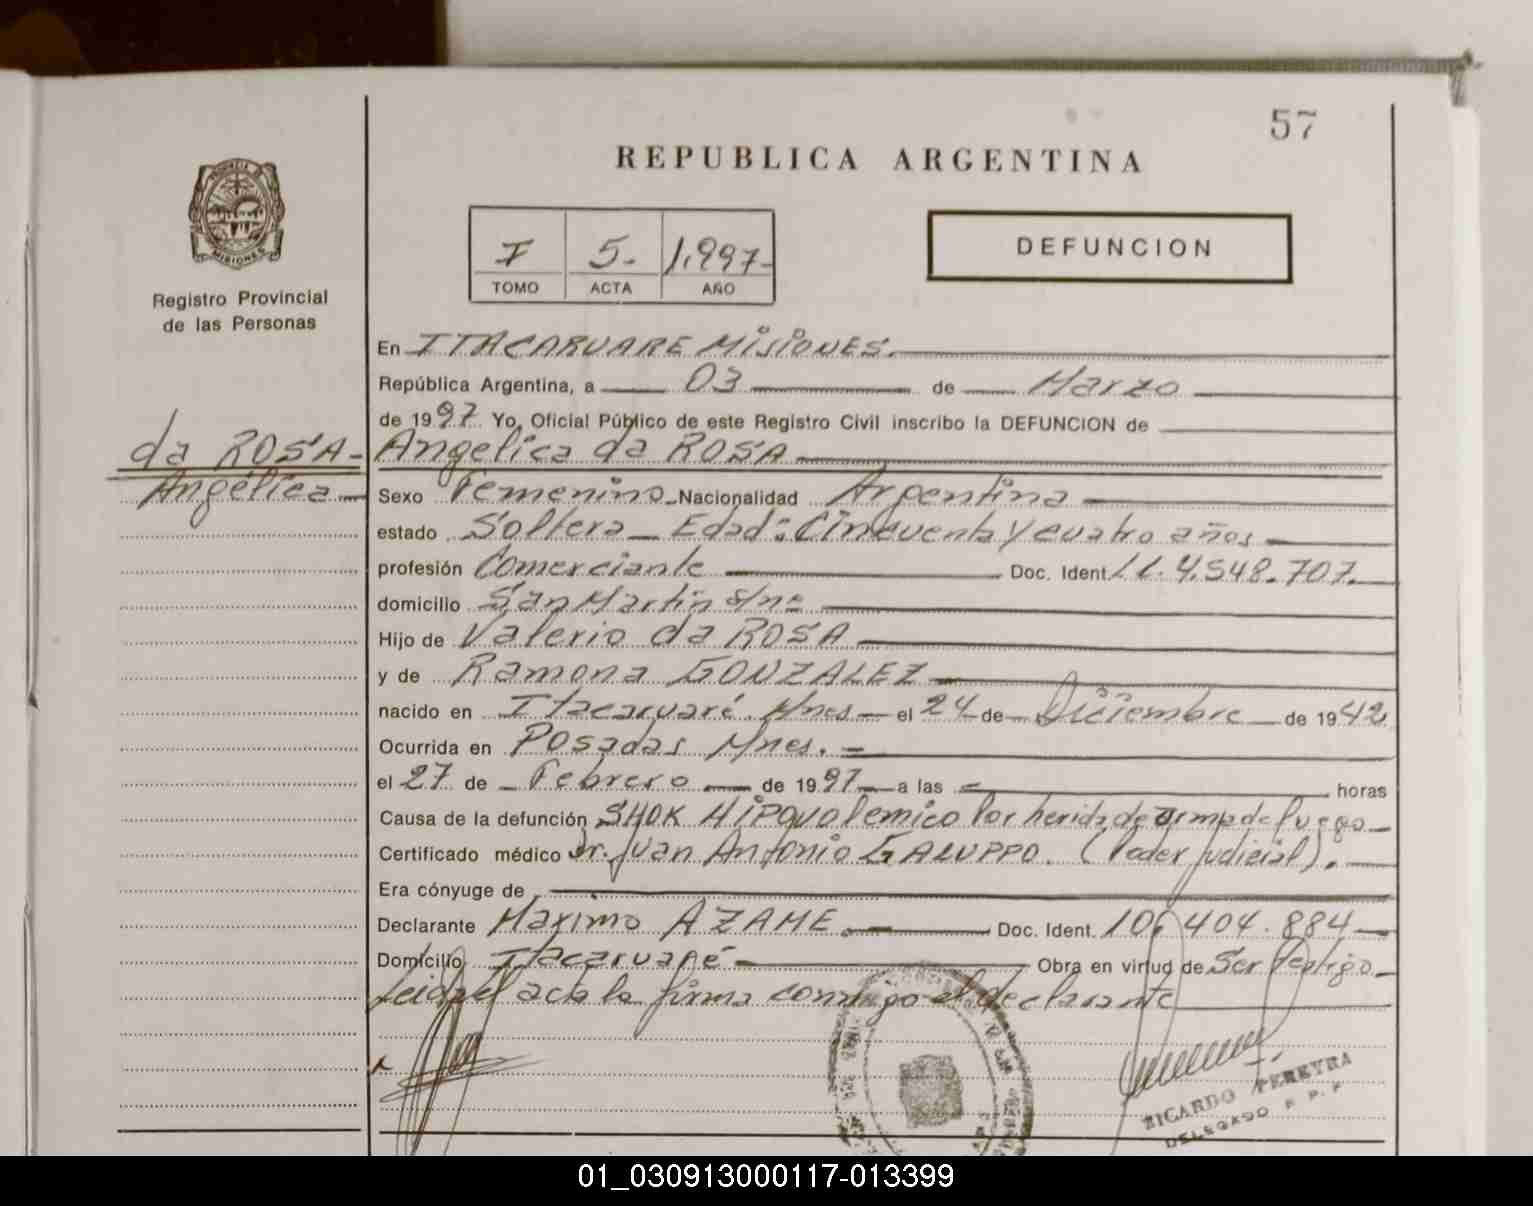 57
REPUBLICA ARGENTINA
PROVINCIA DE
MISIONES
Registro Provincial
de las Personas
I 5.- 1.997-
TOMO ACTA AÑO
DEFUNCION
En ITACARUARE MISIONES.
República Argentina, a 03 de Marzo
de 1997 Yo, Oficial Público de este Registro Civil inscribo la DEFUNCION de
da ROSA-
Angélica
Angélica da ROSA
Sexo Femenino Nacionalidad Argentina
estado Soltera Edad: Cincuenta y cuatro años
profesión Comerciante Doc. Ident. L.C. 4.548.707.
domicilio San Martín s/nº
Hijo de Valerio da ROSA
y de Ramona GONZALEZ
nacido en Itacaruaré. Mnes el 24 de Diciembre de 1942
Ocurrida en Posadas Mnes.
el 27 de Febrero de 1997 a las horas
Causa de la defunción SHOK Hipovolemico Por herida de arma de fuego
Certificado médico Dr. Juan Antonio GALUPPO. (Poder Judicial).
Era cónyuge de
Declarante Maximo AZAME. Doc. Ident. 10.404.884
Domicilio Itacaruaré Obra en virtud de Ser Testigo
Leida el acta la firma conmigo el declarante
RICARDO PEREYRA
DELEGADO R. P. P.
01_030913000117-013399